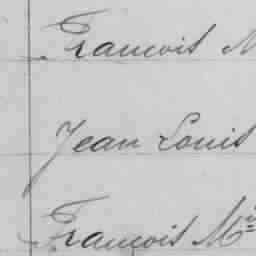 Francois M
Jean Louis
François M